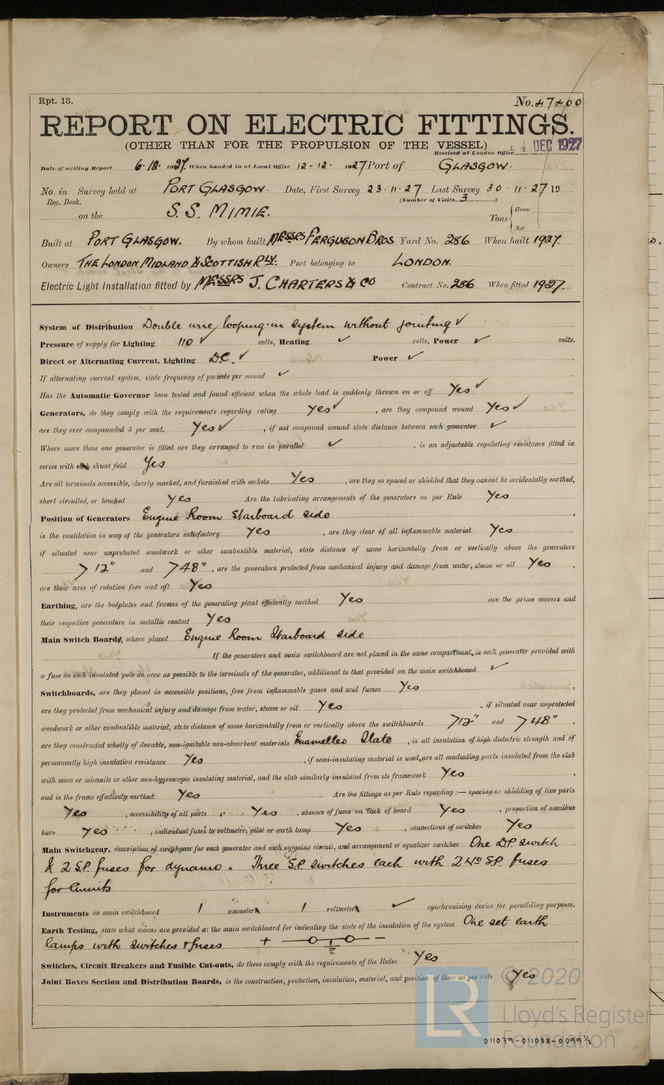 Rpt. 13.
No. 47400
REPORT ON ELECTRIC FITTINGS.
(OTHER THAN FOR THE PROPULSION OF THE VESSEL)
Received at London Office 14 DEC 1927
Date of writing Report 6.12.1927. When handed in at Local Office 12.12.1927 Port of GLASGOW.
No. in Survey held at PORT GLASGOW. Date, First Survey 23.11.27 Last Survey 30.11.27 19
Reg. Book. (Number of Visits 3)
on the S.S. MIMIE. Tons { Gross Net
Built at PORT GLASGOW. By whom built MESSRS FERGUSON BROS Yard No. 286 When built 1927.
Owners THE LONDON MIDLAND & SCOTTISH RLY. Port belonging to LONDON.
Electric Light Installation fitted by MESSRS J. CHARTERS & CO Contract No. 286 When fitted 1927.
System of Distribution Double wire looping-in system without jointing ✓
Pressure of supply for Lighting 110 ✓ volts, Heating ✓ volts, Power ✓ volts.
Direct or Alternating Current, Lighting D.C. ✓ Power ✓
If alternating current system, state frequency of periods per second ✓
Has the Automatic Governor been tested and found efficient when the whole load is suddenly thrown on or off Yes ✓
Generators, do they comply with the requirements regarding rating Yes ✓, are they compound wound Yes ✓
are they over compounded 5 per cent. Yes ✓, if not compound wound state distance between each generator ✓
Where more than one generator is fitted are they arranged to run in parallel ✓, is an adjustable regulating resistance fitted in
series with each shunt field Yes
Are all terminals accessible, clearly marked, and furnished with sockets Yes, are they so spaced or shielded that they cannot be accidentally earthed,
short circuited, or touched Yes Are the lubricating arrangements of the generators as per Rule Yes
Position of Generators Engine Room Starboard side
is the ventilation in way of the generators satisfactory Yes, are they clear of all inflammable material Yes
if situated near unprotected woodwork or other combustible material, state distance of same horizontally from or vertically above the generators
>12" and >48", are the generators protected from mechanical injury and damage from water, steam or oil Yes,
are their axes of rotation fore and aft Yes
Earthing, are the bedplates and frames of the generating plant efficiently earthed Yes are the prime movers and
their respective generators in metallic contact Yes
Main Switch Boards, where placed Engine Room Starboard side
If the generators and main switchboard are not placed in the same compartment, is each generator provided with
a fuse on each insulated pole as near as possible to the terminals of the generator, additional to that provided on the main switchboard ✓
Switchboards, are they placed in accessible positions, free from inflammable gases and acid fumes Yes,
are they protected from mechanical injury and damage from water, steam or oil Yes, if situated near unprotected
woodwork or other combustible material, state distance of same horizontally from or vertically above the switchboards >12" and >48",
are they constructed wholly of durable, non-ignitable non-absorbent materials Enamelled Slate, is all insulation of high dielectric strength and of
permanently high insulation resistance Yes, if semi-insulating material is used, are all conducting parts insulated from the slab
with mica or micanite or other non-hygroscopic insulating material, and the slab similarly insulated from its framework Yes,
and is the frame effectively earthed Yes. Are the fittings as per Rule regarding:— spacing or shielding of live parts
Yes, accessibility of all parts Yes, absence of fuses on back of board Yes, proportion of omnibus
bars Yes, individual fuses to voltmeter, pilot or earth lamp Yes, connections of switches Yes
Main Switchgear, description of switchgear for each generator and each outgoing circuit, and arrangement of equalizer switches One D.P. switch
& 2 S.P. fuses for dynamo. Three S.P. switches each with 2 No S.P. fuses
for Circuits
Instruments on main switchboard 1 ammeter 1 voltmeter ✓ synchronising device for paralleling purposes.
Earth Testing, state what means are provided at the main switchboard for indicating the state of the insulation of the system One set earth
lamps with switches & fuses + —
Switches, Circuit Breakers and Fusible Cut-outs, do these comply with the requirements of the Rules Yes
Joint Boxes Section and Distribution Boards, is the construction, protection, insulation, material, and position of these as per rule Yes
© 2020
LR
Lloyd's Register
Foundation
011079-011088-0099½